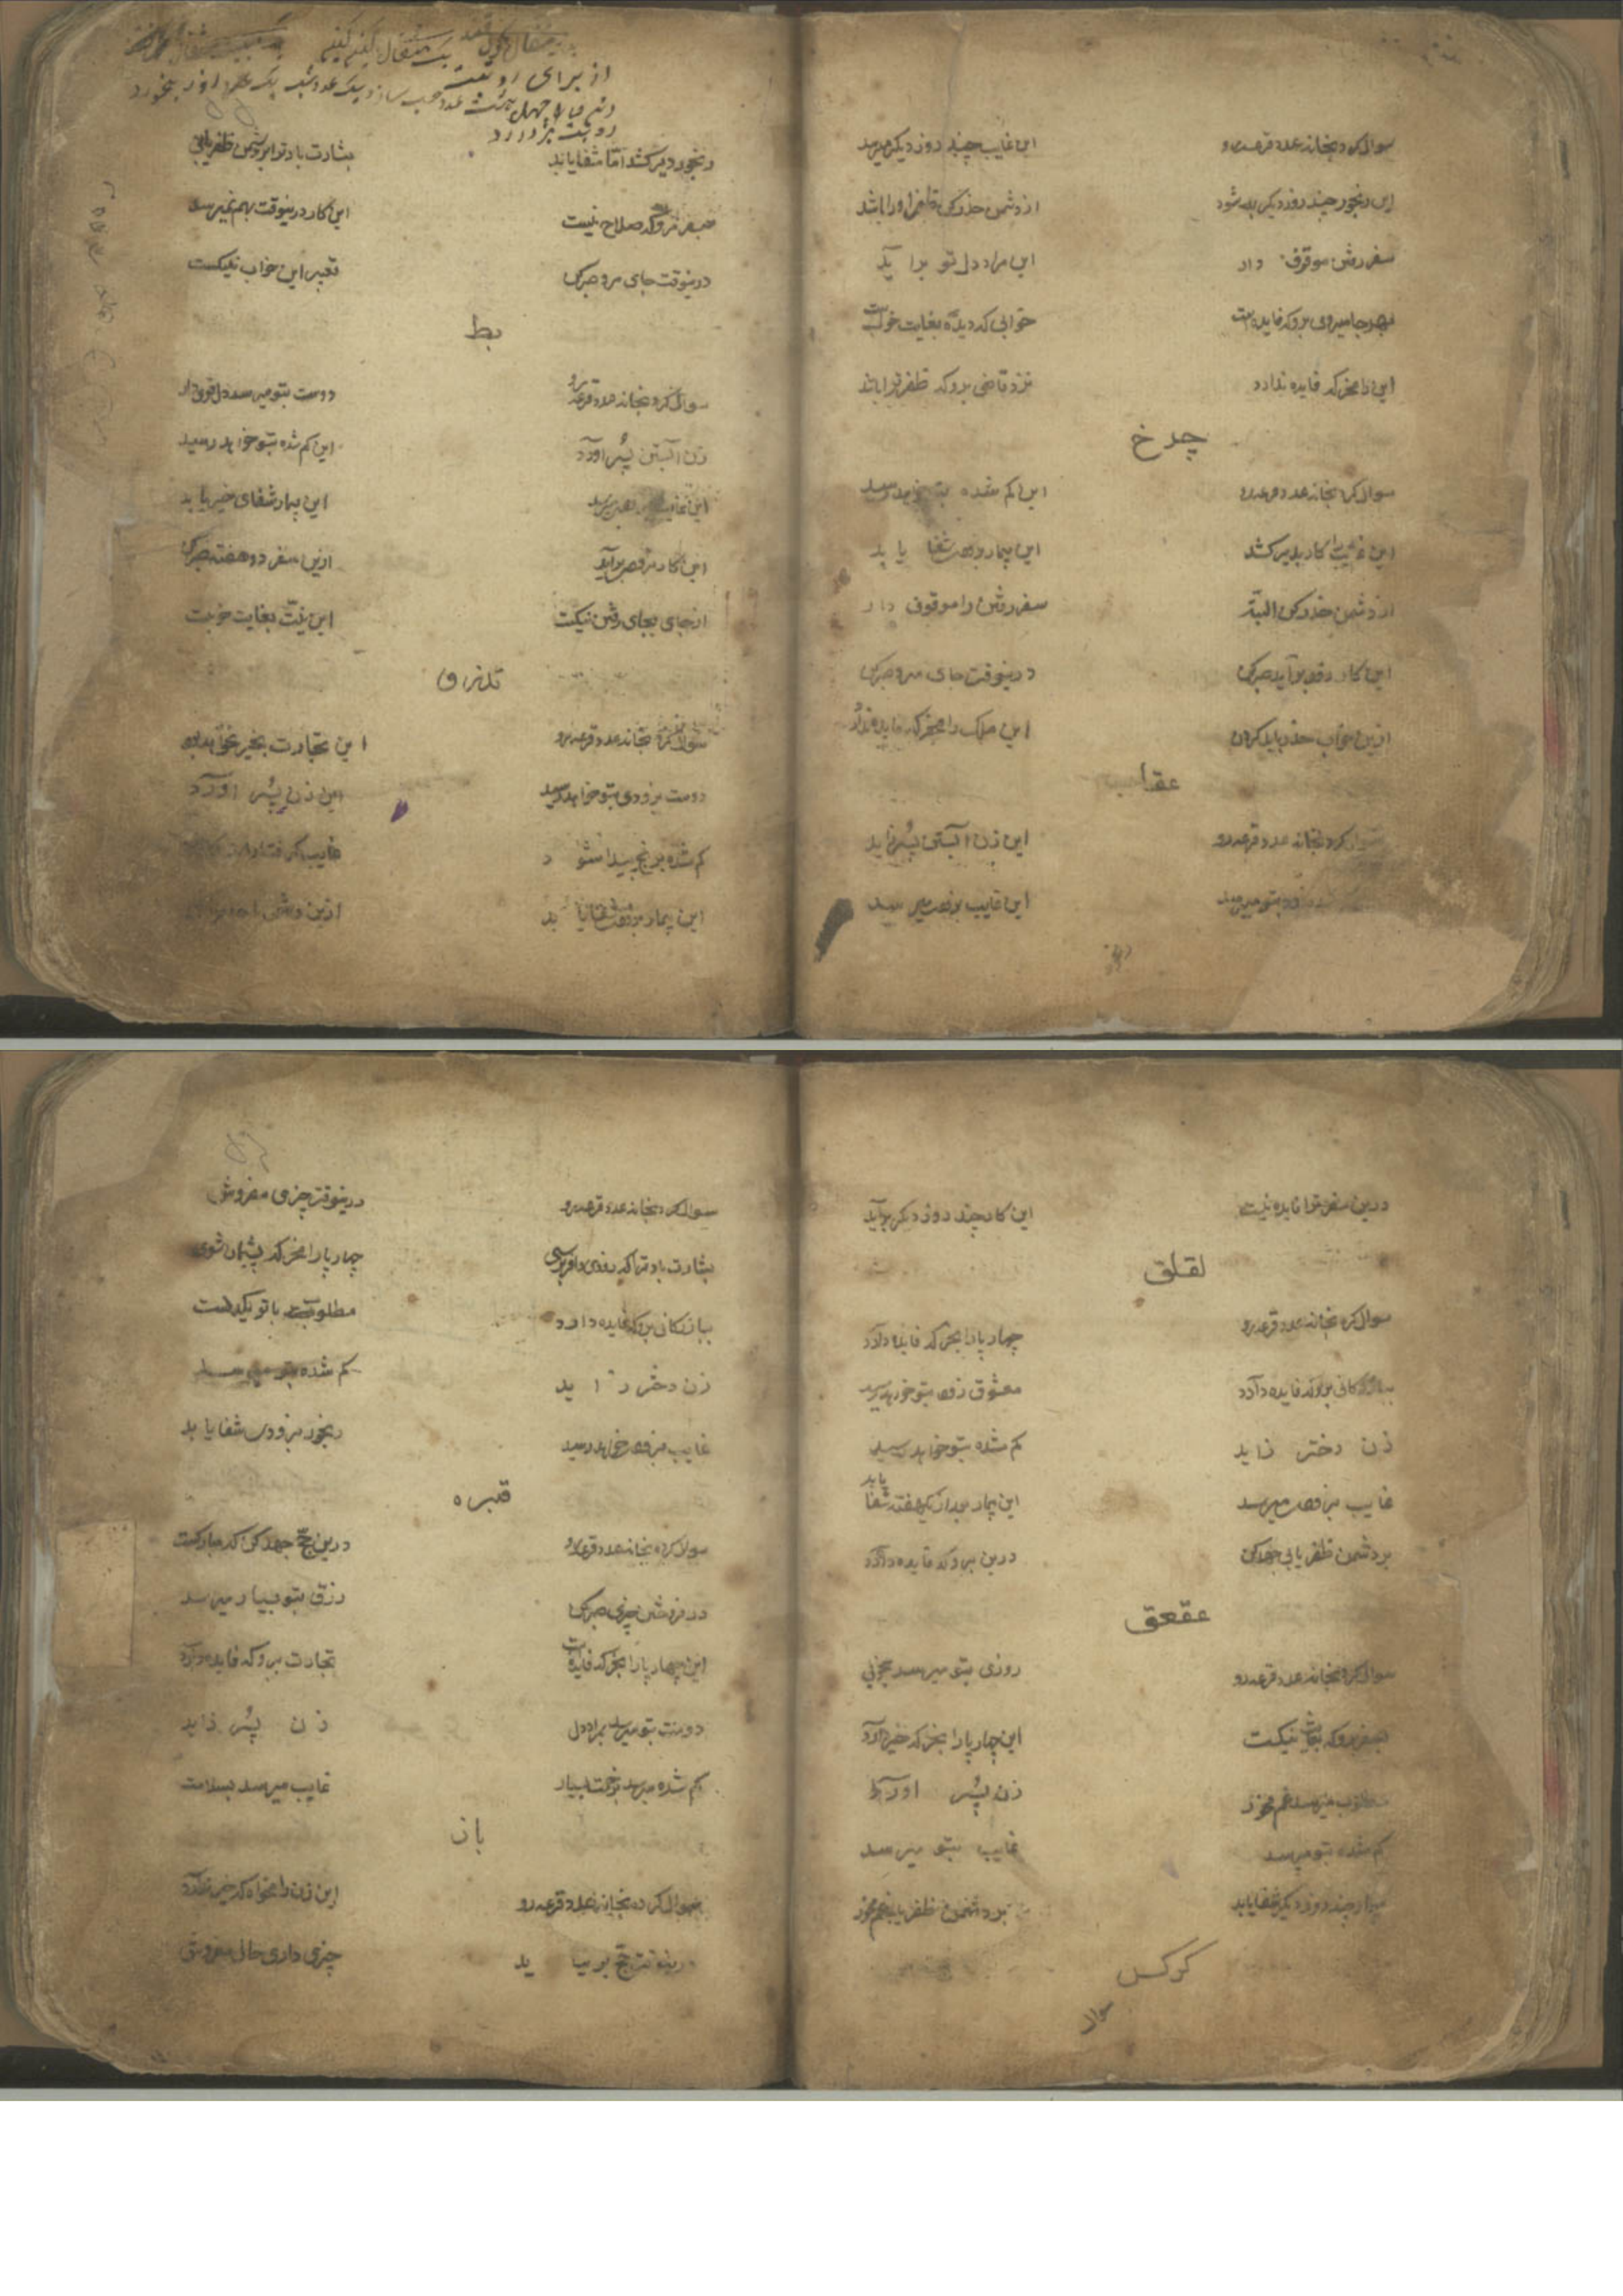 سوال کرد بخانه عدد قرعه رو
این غایب چند روز دیگر میرسد
این رنجور چند روز دیگر به شود
از دشمن حذر کن ظفر او را باشد
سفر رفتن موقوف دار
این مراد دل تو برآید
بهر جا میروی برو که فایده است
خوابی که دیده بغایت خوبست
این را مخر که فایده ندارد
نزد قاضی برو که ظفر ترا باشد
چرخ
سوال کرد بخانه عدد قرعه رو
این گم شده بتو خواهد رسید
این غایب را کار بدیر کشد
این بیمار بزودی شفا یابد
از دشمن حذر کن البته
سفر رفتن را موقوف دار
این کار زود برآید صبر کن
درینوقت جای مرو صبر کن
ازین خواب حذر باید کردن
این ملک را مخر که فایده ندارد
عقاب
سوال کرد بخانه عدد قرعه رو
این زن آبستن پسر زاید
زود بتو میرسد
این غایب بزودی میرسد
از برای رو
رنجور دیر کشد اما شفا یابد
بشارت باد تو را بر دشمن ظفر یابی
بسفر مرو که صلاح نیست
این کار درینوقت بهم نمیرسد
درینوقت جای مرو صبر کن
تعبیر این خواب نیکست
بط
سوال کرد بخانه عدد قرعه رو
دوست بتو میرسد دل قوی دار
زن آبستن پسر آورد
این گم شده بتو خواهد رسید
این غایب میرسد
این بیمار شفای خیر یابد
این کار بزودی برآید
ازین سفر دو هفته صبر کن
از جای بجای رفتن نیکست
این نیت بغایت خوبست
سوال کرد بخانه عدد قرعه رو
این تجارت بخیر خواهد بود
دوست بزودی بتو خواهد رسید
این زن پسر آورد
گم شده برنج پیدا شود
غایب گرفتار
این بیمار بزودی شفا یابد
ازین دشمن
درین سفر ترا فایده نیست
این کار چند روز دیگر برآید
لقلق
سوال کرد بخانه عدد قرعه رو
چهار پا را بخر که فایده دارد
ببازرگانی برو که فایده دارد
معشوق زود بتو خواهد رسید
زن دختر زاید
گم شده بتو خواهد رسید
غایب بزودی میرسد
این بیمار بعد از یکهفته شفا یابد
بر دشمن ظفر یابی جهد کن
درین برو که فایده دارد
عقعق
سوال کرد بخانه عدد قرعه رو
روزی بتو میرسد بخوبی
بسفر برو که بغایت نیکست
این چهار پا را بخر که خیر دارد
مطلوب میرسد غم مخور
زن پسر آورد
گم شده بتو میرسد
غایب بتو میرسد
بیمار چند روز دیگر شفا یابد
بر دشمن ظفر یابی غم مخور
کرکس
سوال
سوال کرد بخانه عدد قرعه رو
درینوقت چیزی مفروش
بشارت باد ترا که روزی وافر برسی
چهار پا را مخر که پشیمان شوی
ببازرگانی برو که فایده دارد
مطلوبت با تو یکدلست
زن دختر زاید
گم شده بتو میرسد
غایب بزودی خواهد رسید
رنجور بزودی شفا یابد
قبره
سوال کرد بخانه عدد قرعه رو
درین حج جهد کن که مبارکست
در فروختن چیزی صبر کن
رزق بتو بسیار میرسد
این چهار پا را بخر که فایده است
تجارت برو که فایده دارد
دوست بتو میرسد بمراد دل
زن پسر زاید
گم شده میرسد بزحمت بسیار
غایب میرسد بسلامت
باز
سوال کرد بخانه عدد قرعه رو
این زن را مخواه که خیر ندارد
درینوقت حج بر نیاید
چیزی داری حالی مفروش